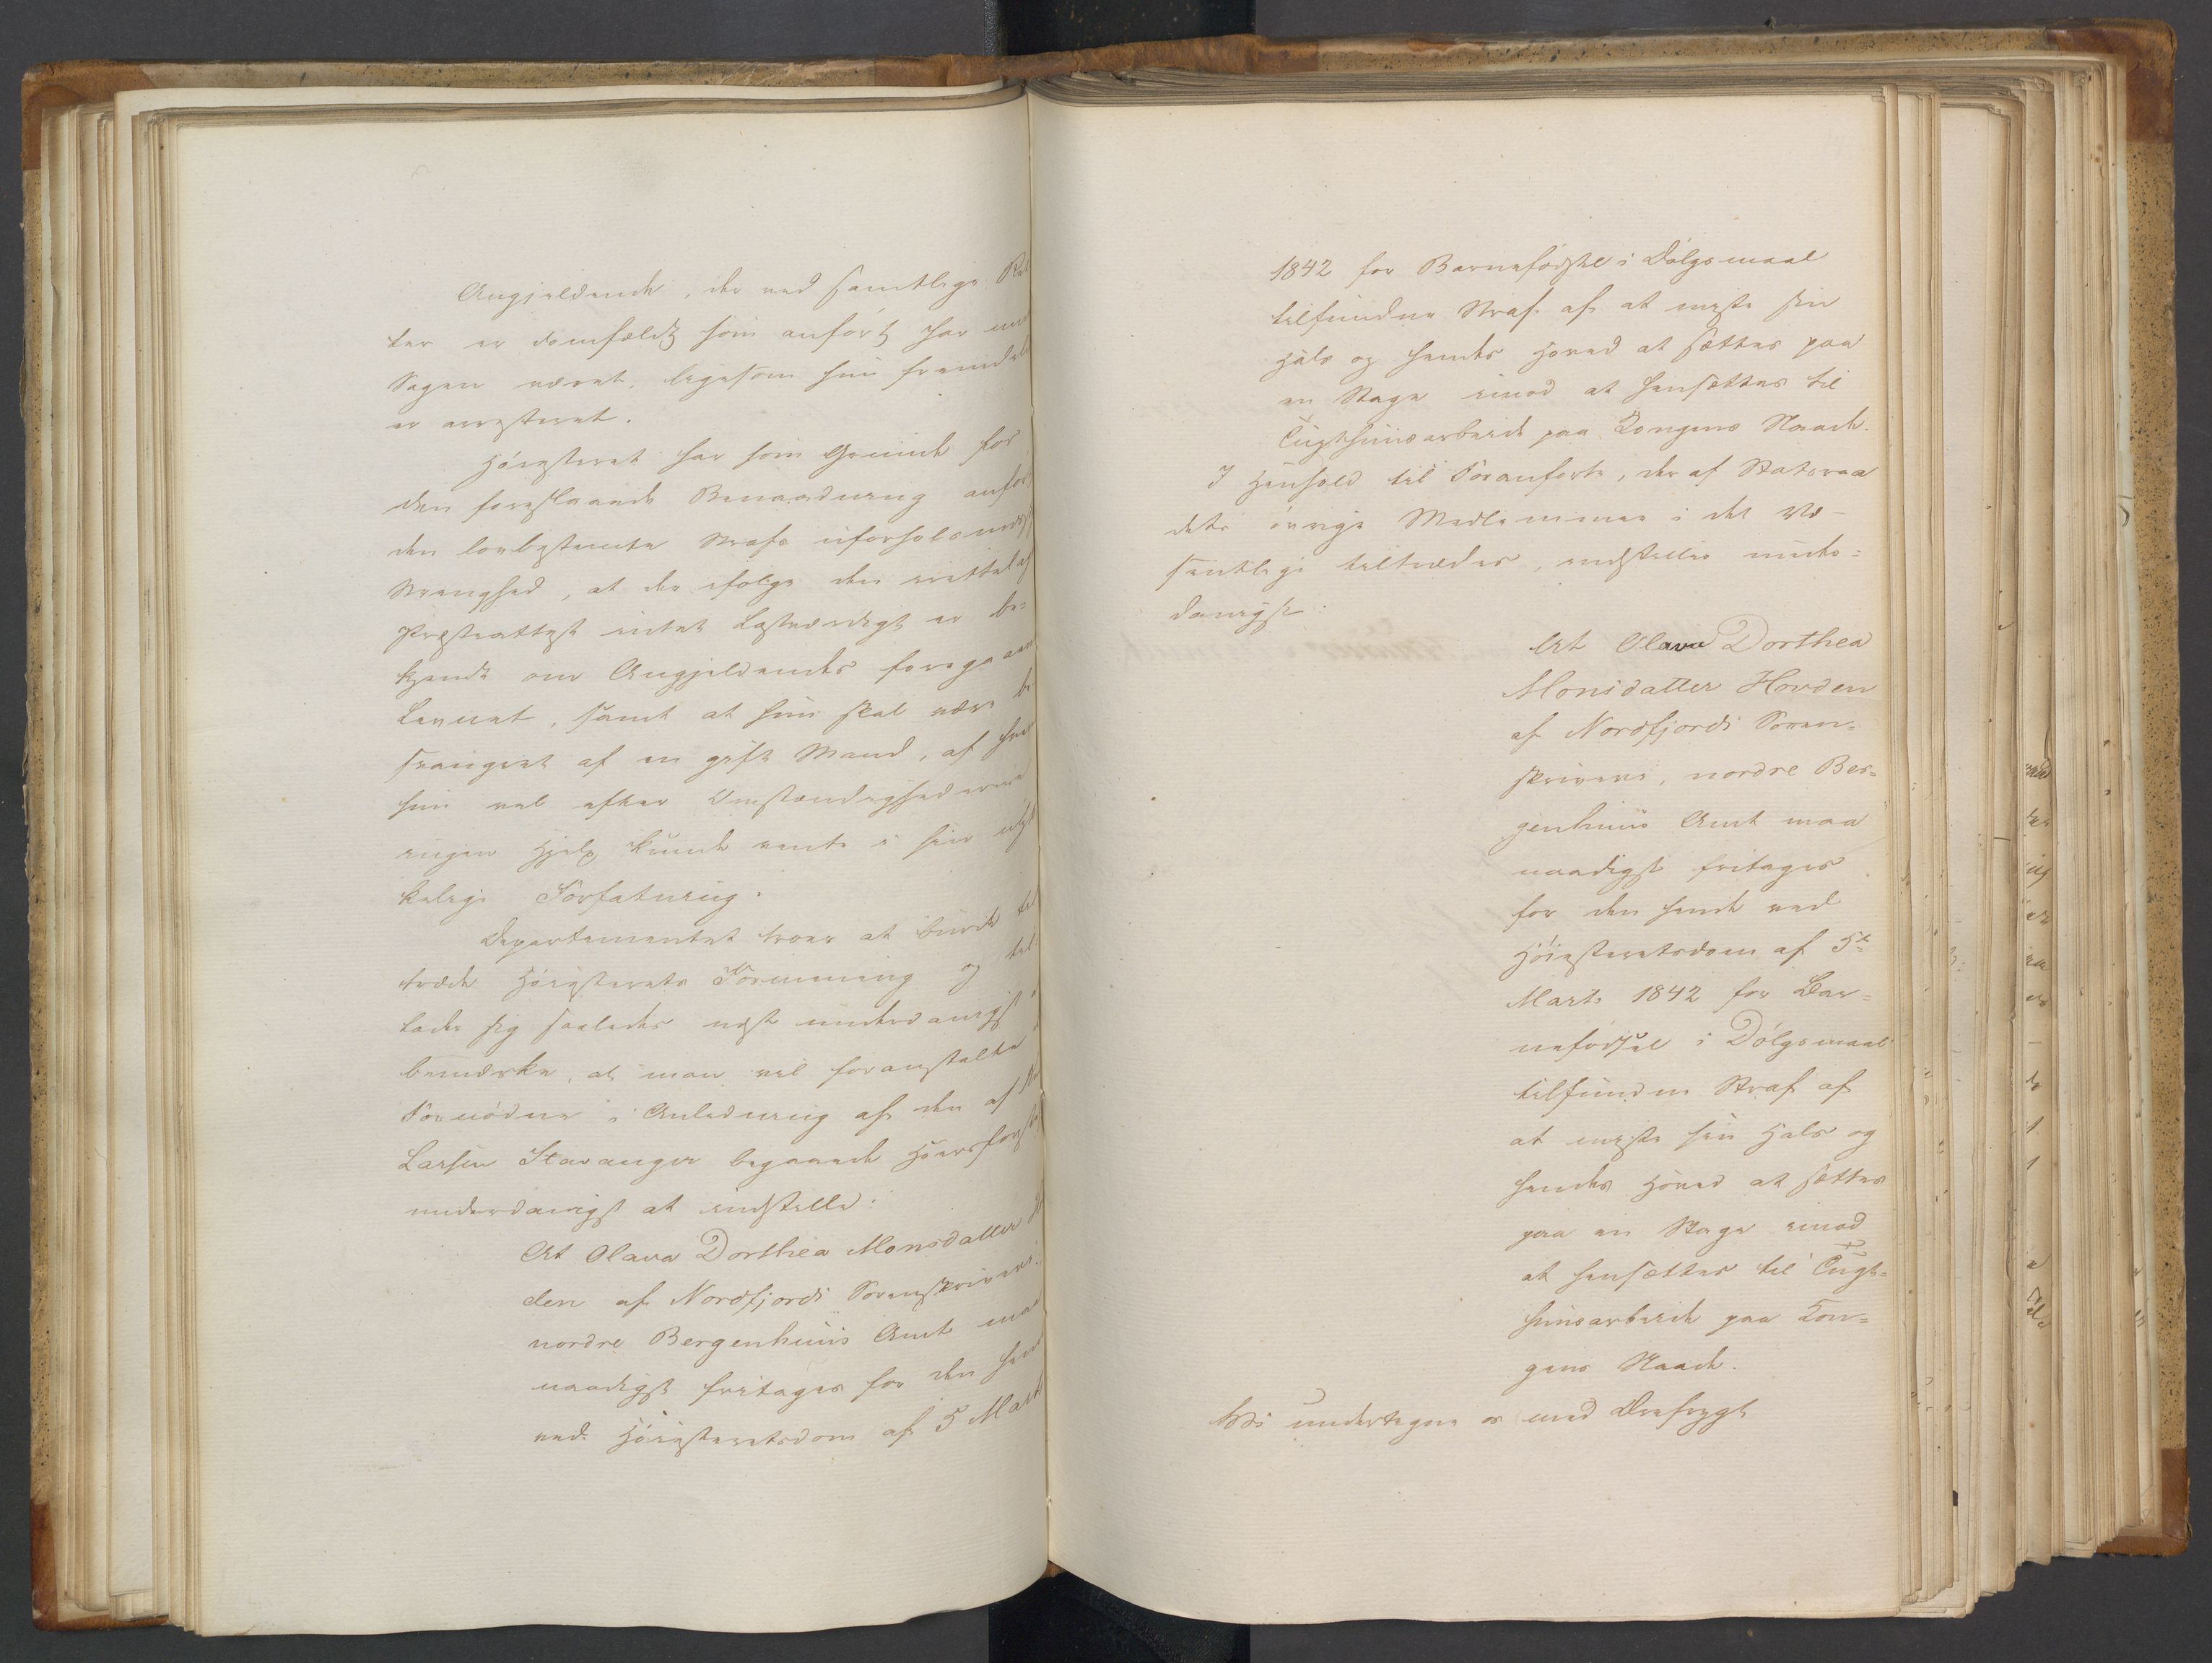 Angjeldende, der ved samtlige Ret
ter er domfældt som anført har under
Sagen været, ligesom hun fremdeles
er arresteret.
Høiesteret har som Grund for
den foreslaaede Benaadning anført
den lovbestemte Strafs uforholdsmæssige
Strenghed, at der ifølge den
Præsteattest intet Lastværdigt er be-
kjendt om Angjeldendes foregaaende
Levnet, samt at hun skal være be-
svangret af en gift Mand, af hvem
hun vel efter Omstændighederne
ingen Hjelp kunde vente i sin ulyk
kelige Forfatning.
Departementet troer at burde til
træde Høiesterets Formening og til-
lader sig saaledes næst underdanigst
bemærke, at man vil foranstalte
Fornødne i Anledning af den af
Larsen Stavanger begaaede
underdanigst at indstille:
At Olava Dorthea Monsdatter Ho
den af Nordfjords Sorenskriveri
nordre Bergenhuus Amt maa
naadigst fritages for den hende
ved Høiesteretsdom af 5 Marts
1842 for Barnefødsel i Dølgsmaal
tilfundne Straf af at miste sin
Hals og hendes Hoved at sættes paa
en Stage imod at hensættes til
Tugthuusarbeide paa Kongens Naade.
I Henhold til Foranførte, der af Statsraa
dets øvrige Medlemmer i det Væ-
sentlige tiltrædes, indstilles under-
danigst:
At Olava Dorthea
Monsdatter Hovden
af Nordfjords Soren-
skriveri, nordre Ber-
genhuus Amt maa
naadigst fritages
for den hende ved
Høiesteretsdom af 5te
Marts 1842 for Bar-
nefødsel i Dølgsmaal
tilfundne Straf af
at miste sin Hals og
hendes Hoved at sættes
paa en Stage imod
at hensættes til Tugt-
huusarbeide paa Kon-
gens Naade.
Vi undertegne os med Ærefrygt